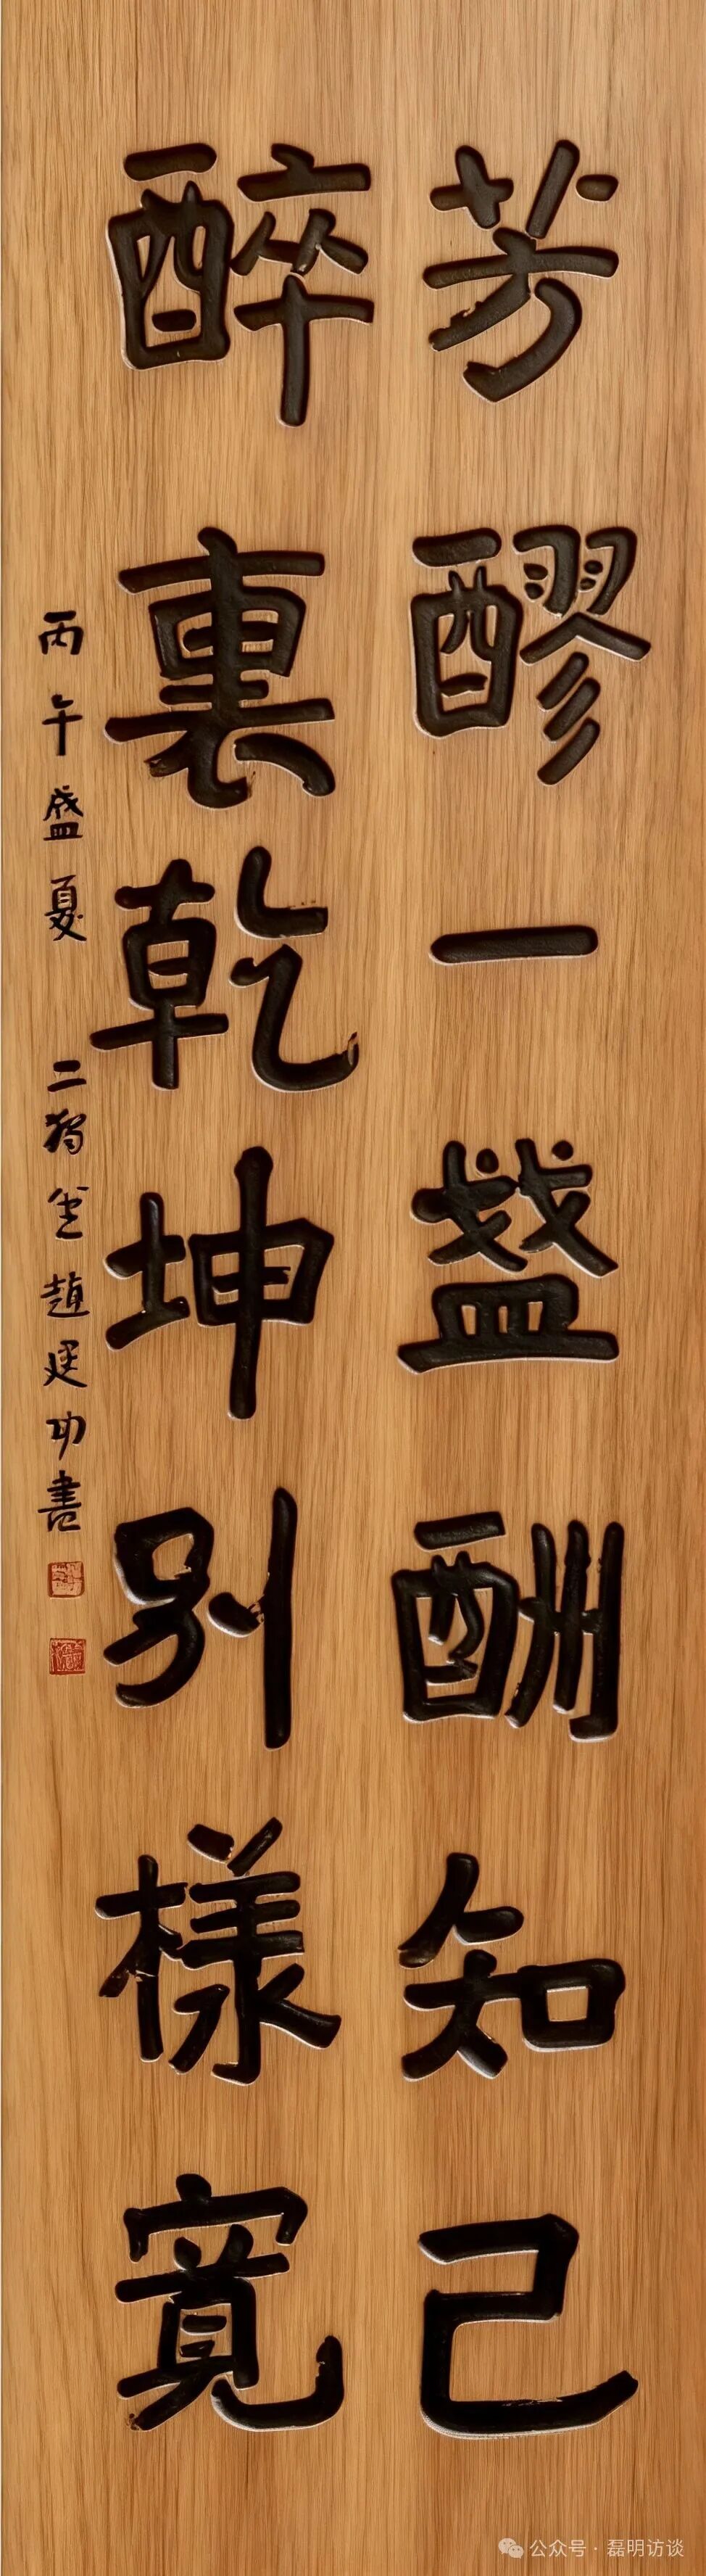 芳醪一盞酬知己
醉裏乾坤別樣寬
丙午盛夏 二獨堂趙建功書
公众号·磊明访谈